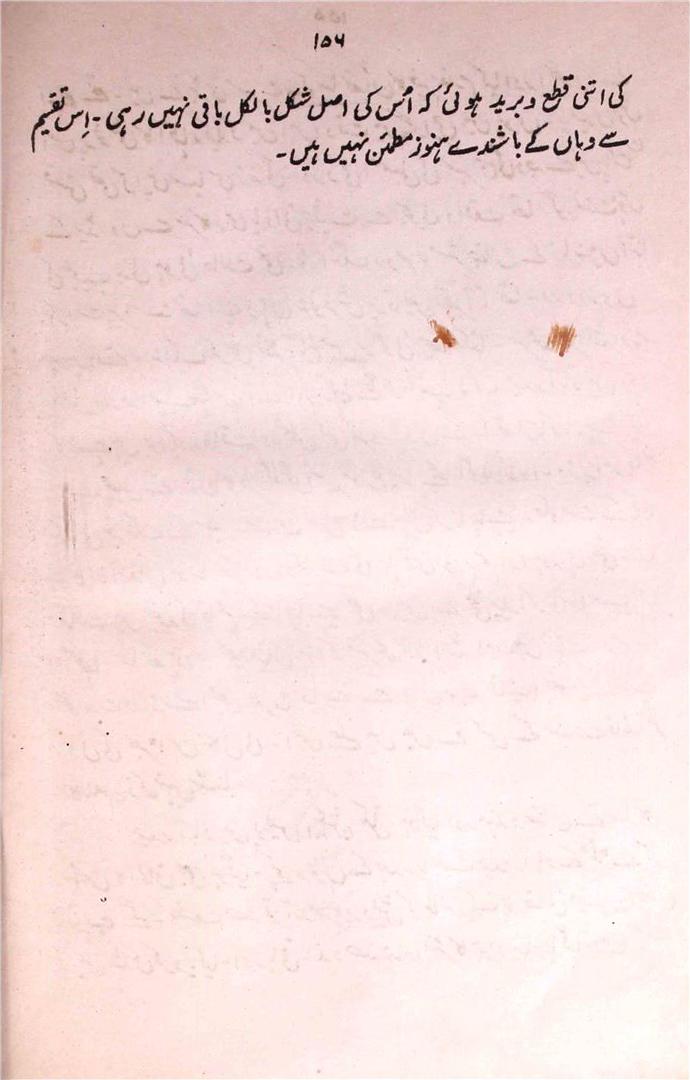 ۱۵۶
کی اتنی قطع و برید ہوئی کہ اُس کی اصل شکل بالکل باقی نہیں رہی۔ اِس تقسیم
سے وہاں کے باشندے ہنوز مطمئن نہیں ہیں۔